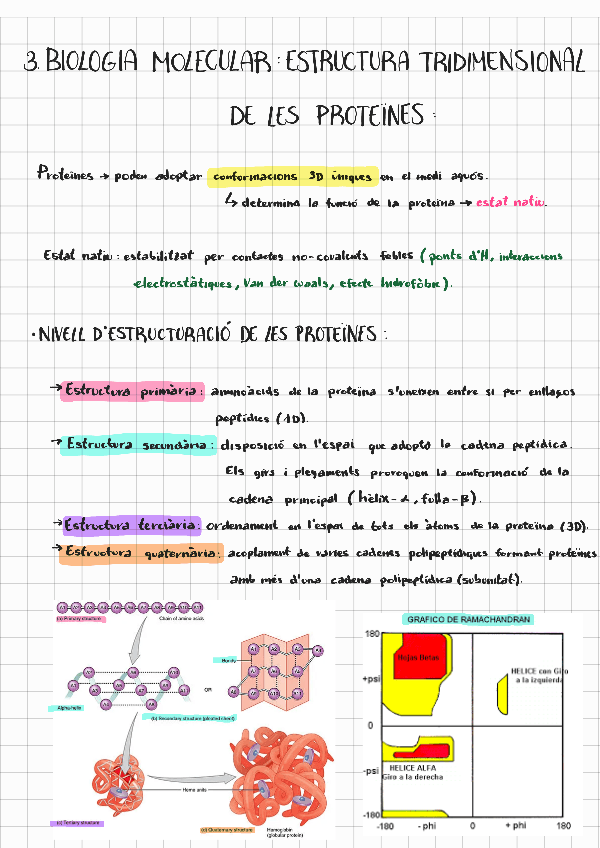 3. BIOLOGIA MOLECULAR: ESTRUCTURA TRIDIMENSIONAL
DE LES PROTEÏNES:
Proteïnes → poden adoptar conformacions 3D úniques en el medi aquós.
↳ determina la funció de la proteïna → estat natiu.
Estat natiu: estabilitzat per contactes no-covalents febles (ponts d'H, interaccions
electrostàtiques, Van der waals, efecte hidrofòbic).
· NIVELL D'ESTRUCTURACIÓ DE LES PROTEÏNES:
→ Estructura primària: aminoàcids de la proteïna s'uneixen entre si per enllaços
peptídics (1D).
→ Estructura secundària: disposició en l'espai que adopta la cadena peptídica.
Els girs i plegaments provoquen la conformació de la
cadena principal (hèlix-α, fulla-β).
→ Estructura terciària: ordenament en l'espai de tots els àtoms de la proteïna (3D).
→ Estructura quaternària: acoplament de varies cadenes polipeptídiques formant proteïnes
amb més d'una cadena polipeptídica (subunitat).
(a) Primary structure
Chain of amino acids
Bonds
Alpha-helix
OR
(b) Secondary structure (pleated sheet)
Heme units
(c) Tertiary structure
(d) Quaternary structure
Hemoglobin
(globular protein)
GRAFICO DE RAMACHANDRAN
180
Hojas Betas
+psi
HELICE con Giro
a la izquierda
0
-psi
HELICE ALFA
Giro a la derecha
-180
-180 - phi 0 + phi 180